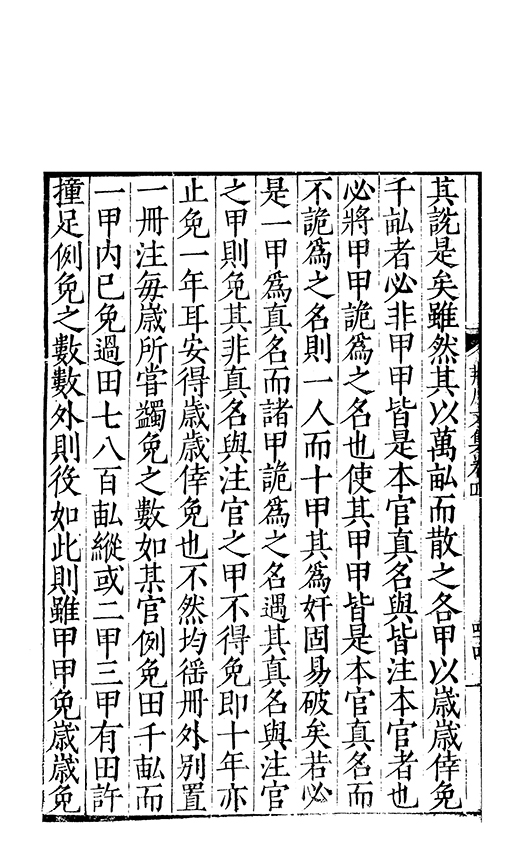 其說是矣雖然其以萬畝而散之各甲以歲歲倖免
千畝者必非甲甲皆是本官真名與皆注本官者也
必將甲甲詭爲之名也使其甲甲皆是本官真名而
不詭爲之名則一人而十甲其爲奸固易破矣若必
是一甲爲真名而諸甲詭爲之名遇其真名與注官
之甲則免其非真名與注官之甲不得免即十年亦
止免一年耳安得歲歲倖免也不然均徭冊外别置
一冊注每歲所當蠲免之數如某官例免田千畝而
一甲內已免過田七八百畝縱或二甲三甲有田許
撞足例免之數數外則役如此則雖甲甲免歲歲免
文集卷四